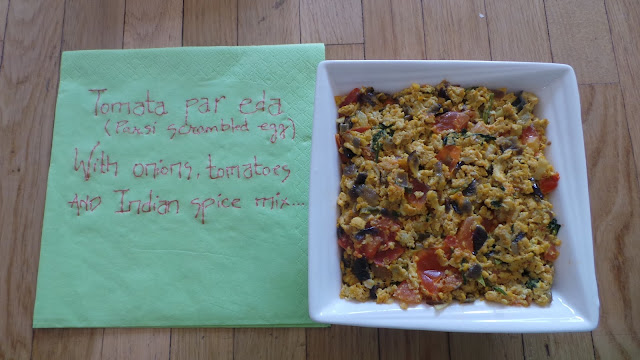 Tomata par eda
(Parsi scrambled egg)
With onions, tomatoes
AND Indian spice mix...